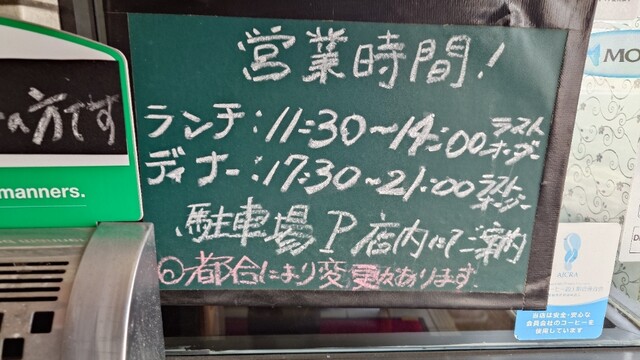 営業時間!
ランチ:11:30~14:00 ラストオーダー
ディナー:17:30~21:00 ラストオーダー
駐車場P店内にてご案内
◎都合により変更あります
の方です
manners.
MO
AICRA
当店は安全・安心な
会員会社のコーヒーを
使用しています